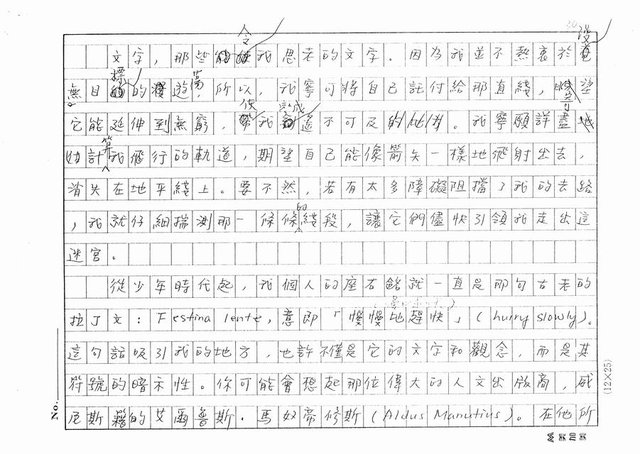 文字，那些令我思考的文字。因為我並不熱衷於
無目標的漫遊，所以，我寧可將自己託付給那直綫，
它能延伸到無窮，使我變成遙不可及的。我寧願詳盡地
計算我飛行的軌道，期望自己能像箭矢一樣地飛射出去，
消失在地平綫上。要不然，若有太多障礙阻擋了我的去路
，我就仔細揣測那一條條的綫段，讓它們儘快引領我走出這
迷宮。
從少年時代起，我個人的座右銘就一直是那句古老的
拉丁文：Festina lente，意即「慢慢地趕快」（hurry slowly）。
這句話吸引我的地方，也許不僅是它的文字和觀念，而是其
符號的暗示性。你可能會想起那位偉大的人文出版商，威
尼斯籍的艾爾魯斯·馬如帝修斯（Aldus Manutius）。在他所
No.
(12×25)